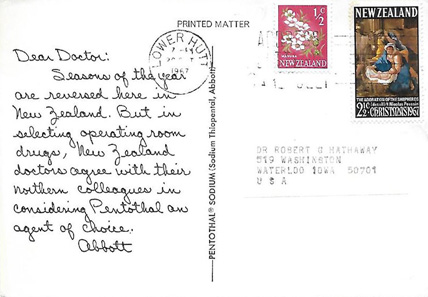 PRINTED MATTER
Dear Doctor:
Seasons of the year
are reversed here in
New Zealand. But in
selecting operating room
drugs, New Zealand
doctors agree with their
northern colleagues in
considering Pentothal an
agent of choice.
Abbott
PENTOTHAL® SODIUM (Sodium Thiopental, Abbott)
LOWER HUTT
1967
½c
NEW ZEALAND
NEW ZEALAND
THE ADORATION OF THE SHEPHERDS
2½c CHRISTMAS 1967
DR ROBERT C HATHAWAY
519 WASHINGTON
WATERLOO IOWA 50701
U S A